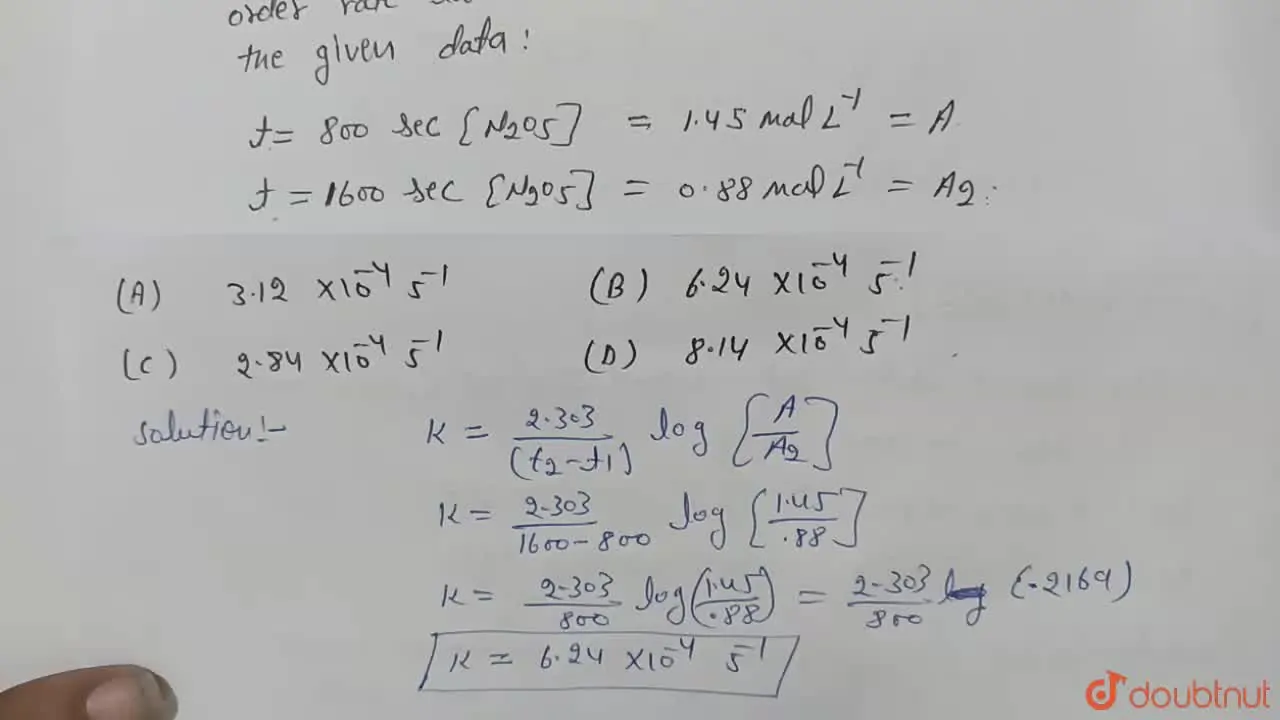 order
the given data:
t = 800 sec [N2O5] = 1.45 mol L⁻¹ = A.
t = 1600 sec [N2O5] = 0.88 mol L⁻¹ = A2:
(A) 3.12 ×10⁻⁴ s⁻¹ (B) 6.24 ×10⁻⁴ s⁻¹
(C) 2.84 ×10⁻⁴ s⁻¹ (D) 8.14 ×10⁻⁴ s⁻¹
solution:- K = 2.303/(t2-t1) log [A/A2]
K = 2.303/1600-800 log [1.45/.88]
K = 2.303/800 log(1.45/.88) = 2.303/800 (.2169)
K = 6.24 ×10⁻⁴ s⁻¹
doubtnut